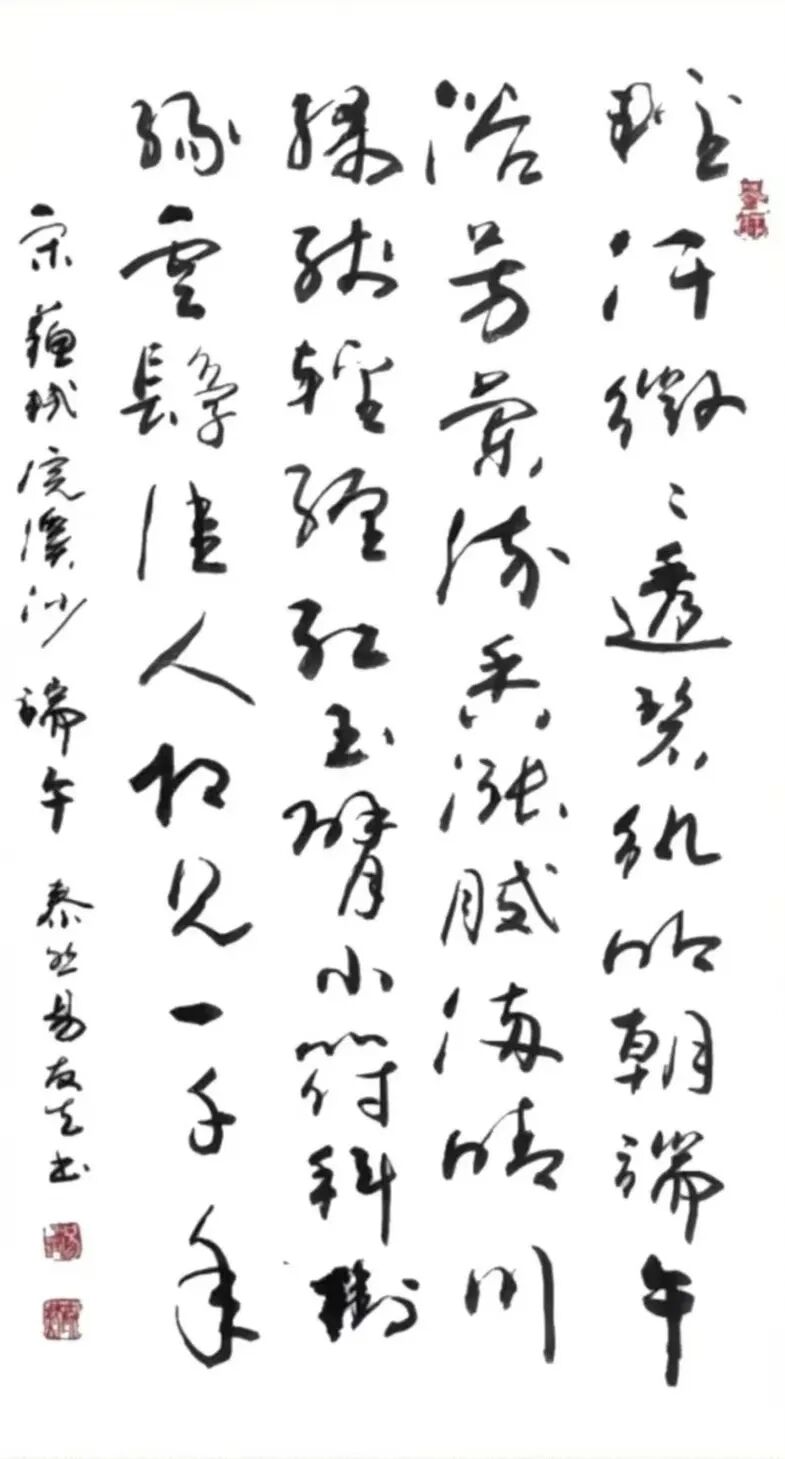 輕汗微々透碧紈明朝端午
浴芳蘭流香漲膩滿晴川
綵綫輕纏紅玉臂小符斜掛
綠雲鬟佳人相見一千年
宋蘇軾浣溪沙端午 易友书